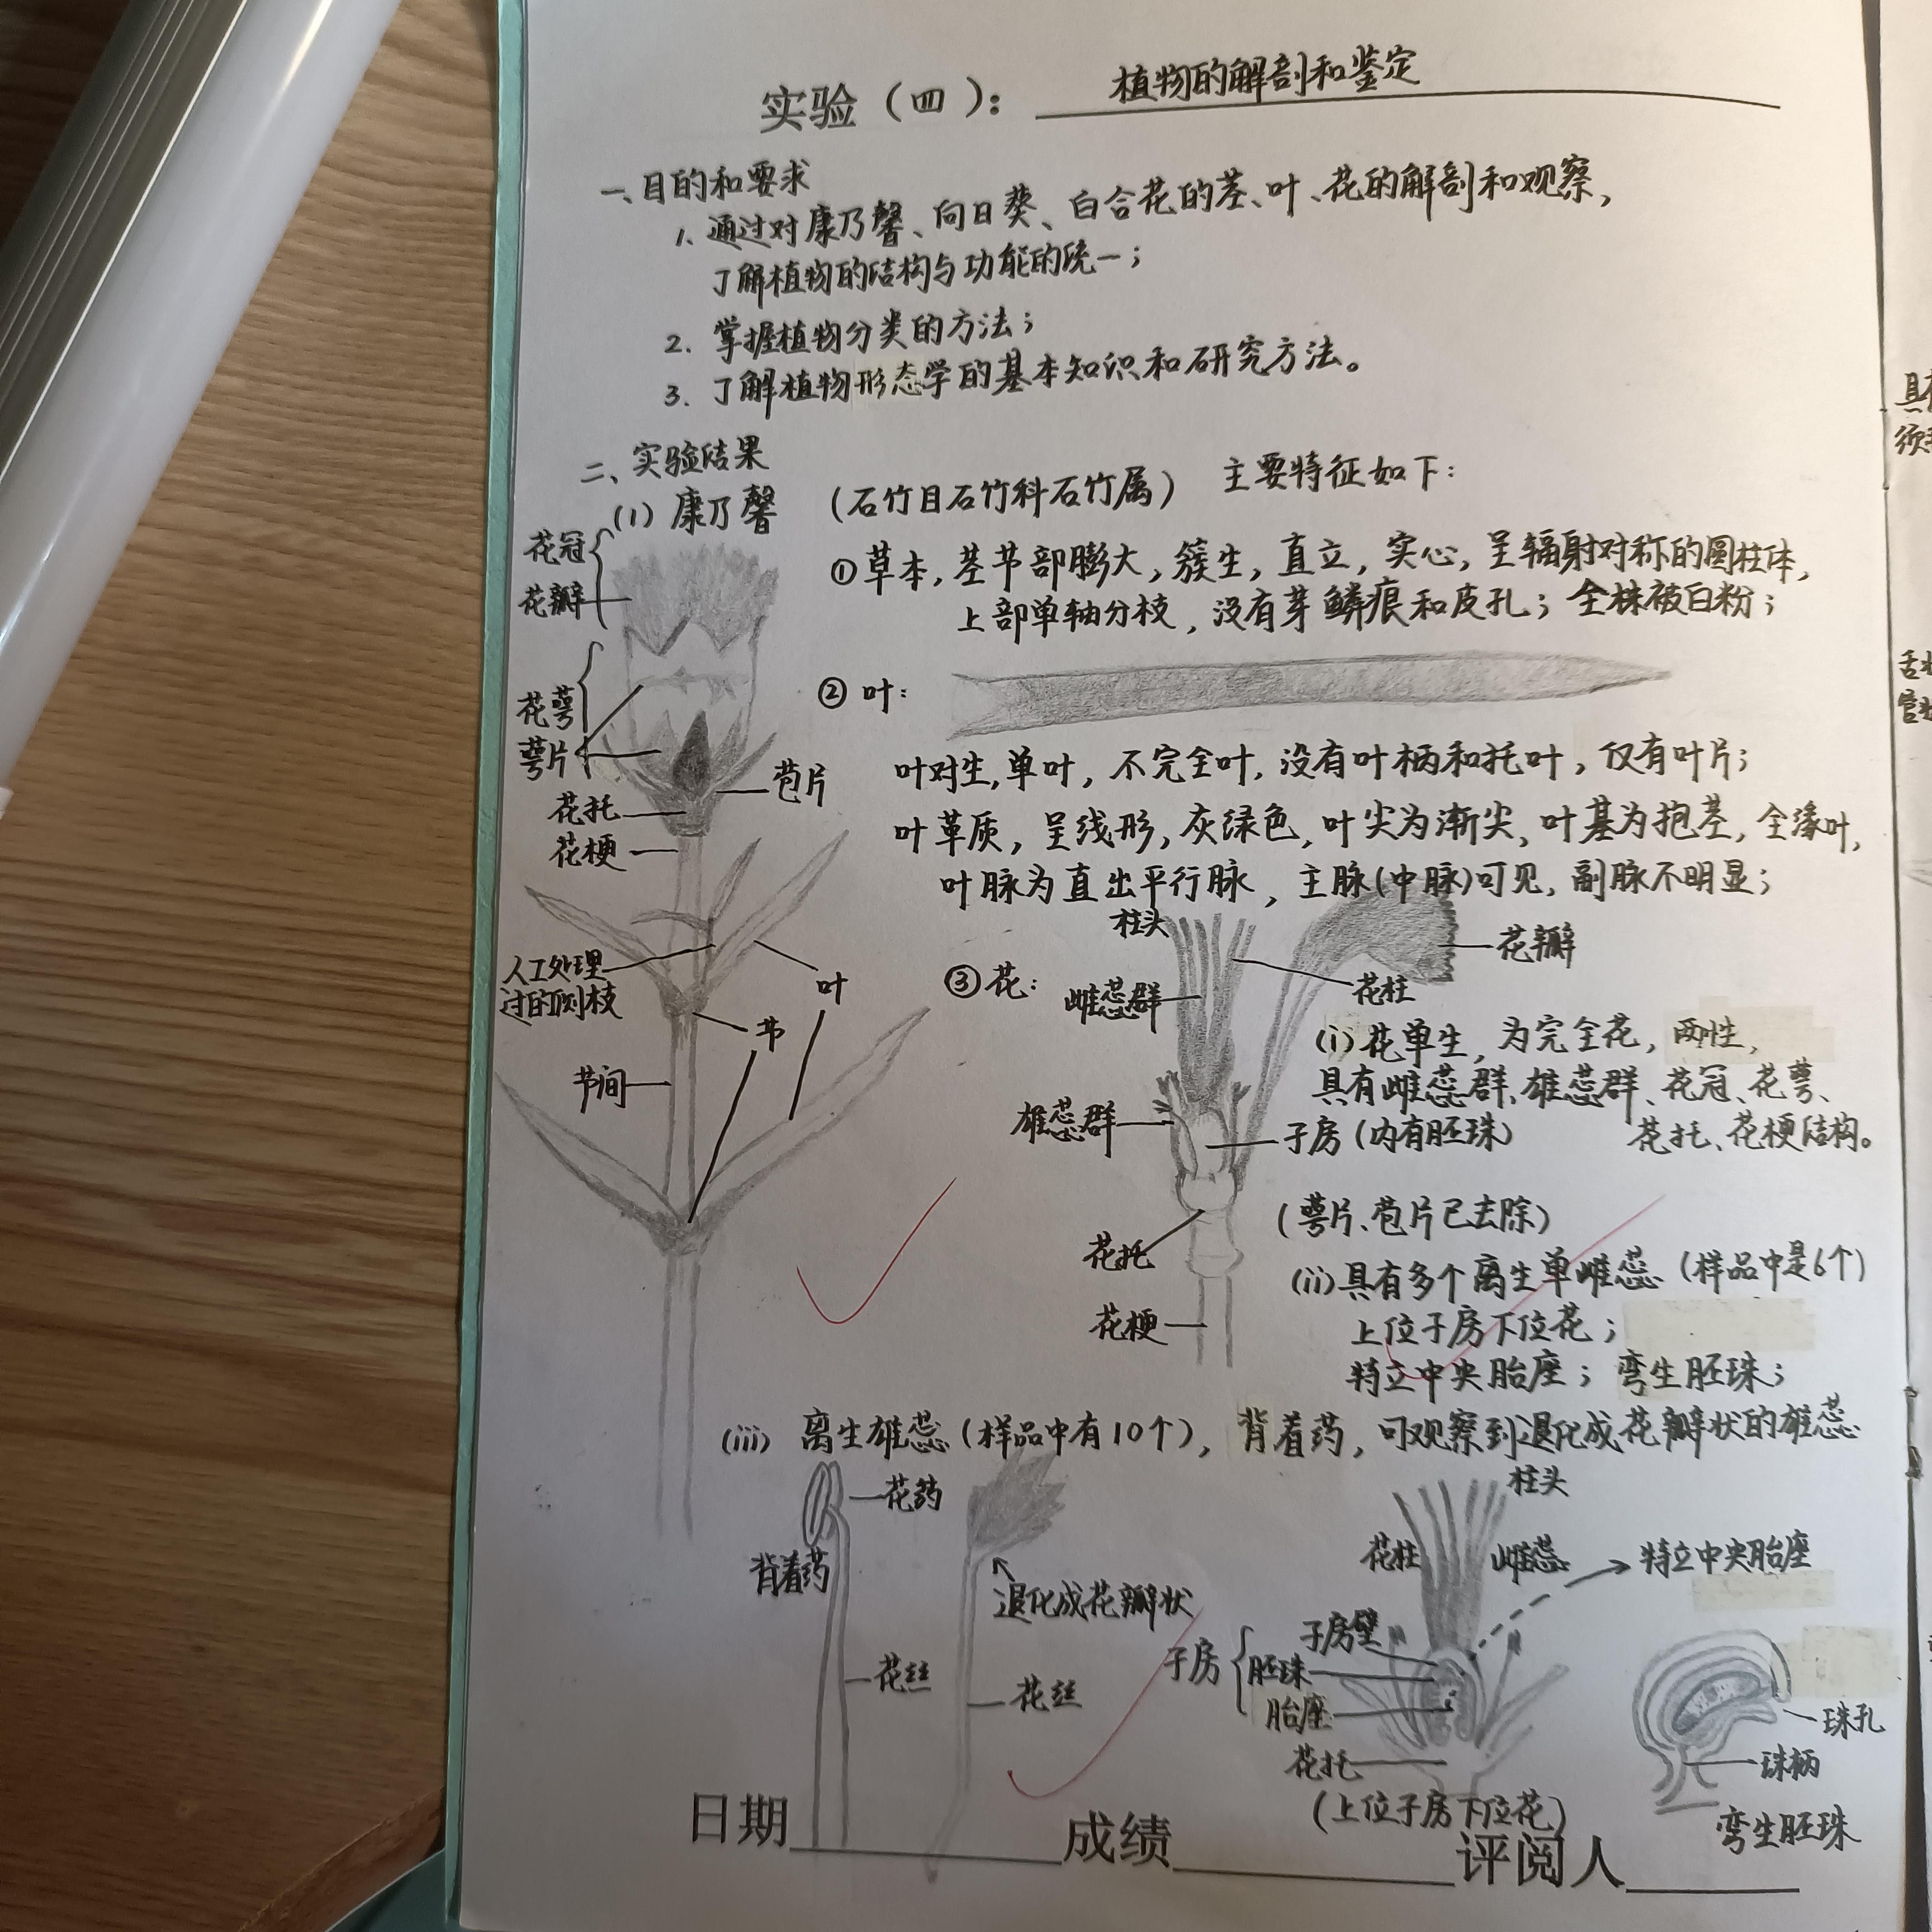 实验（四）：植物的解剖和鉴定
一、目的和要求
1. 通过对康乃馨、向日葵、白合花的茎、叶、花的解剖和观察，
了解植物的结构与功能的统一；
2. 掌握植物分类的方法；
3. 了解植物形态学的基本知识和研究方法。
二、实验结果
(1) 康乃馨 （石竹目石竹科石竹属） 主要特征如下：
花冠
花瓣
花萼
萼片
花托
花梗
苞片
人工处理
过的侧枝
叶
节
节间
①草本，茎节部膨大，簇生，直立，实心，呈辐射对称的圆柱体，
上部单轴分枝，没有芽鳞痕和皮孔；全株被白粉；
②叶：
叶对生，单叶，不完全叶，没有叶柄和托叶，仅有叶片；
叶革质，呈线形，灰绿色，叶尖为渐尖，叶基为抱茎，全缘叶，
叶脉为直出平行脉，主脉(中脉)可见，副脉不明显；
③花：
柱头
花瓣
花柱
雌蕊群
雄蕊群
子房（内有胚珠）
花托
花梗
(i) 花单生，为完全花，两性，
具有雌蕊群、雄蕊群、花冠、花萼、
花托、花梗结构。
（萼片、苞片已去除）
(ii) 具有多个离生单雌蕊（样品中是6个）
上位子房下位花；
特立中央胎座；弯生胚珠；
(iii) 离生雄蕊（样品中有10个），背着药，可观察到退化成花瓣状的雄蕊
花药
背着药
花丝
退化成花瓣状
花丝
柱头
花柱
雌蕊
特立中央胎座
子房
子房壁
胚珠
胎座
花托
（上位子房下位花）
珠孔
珠柄
弯生胚珠
日期 成绩 评阅人